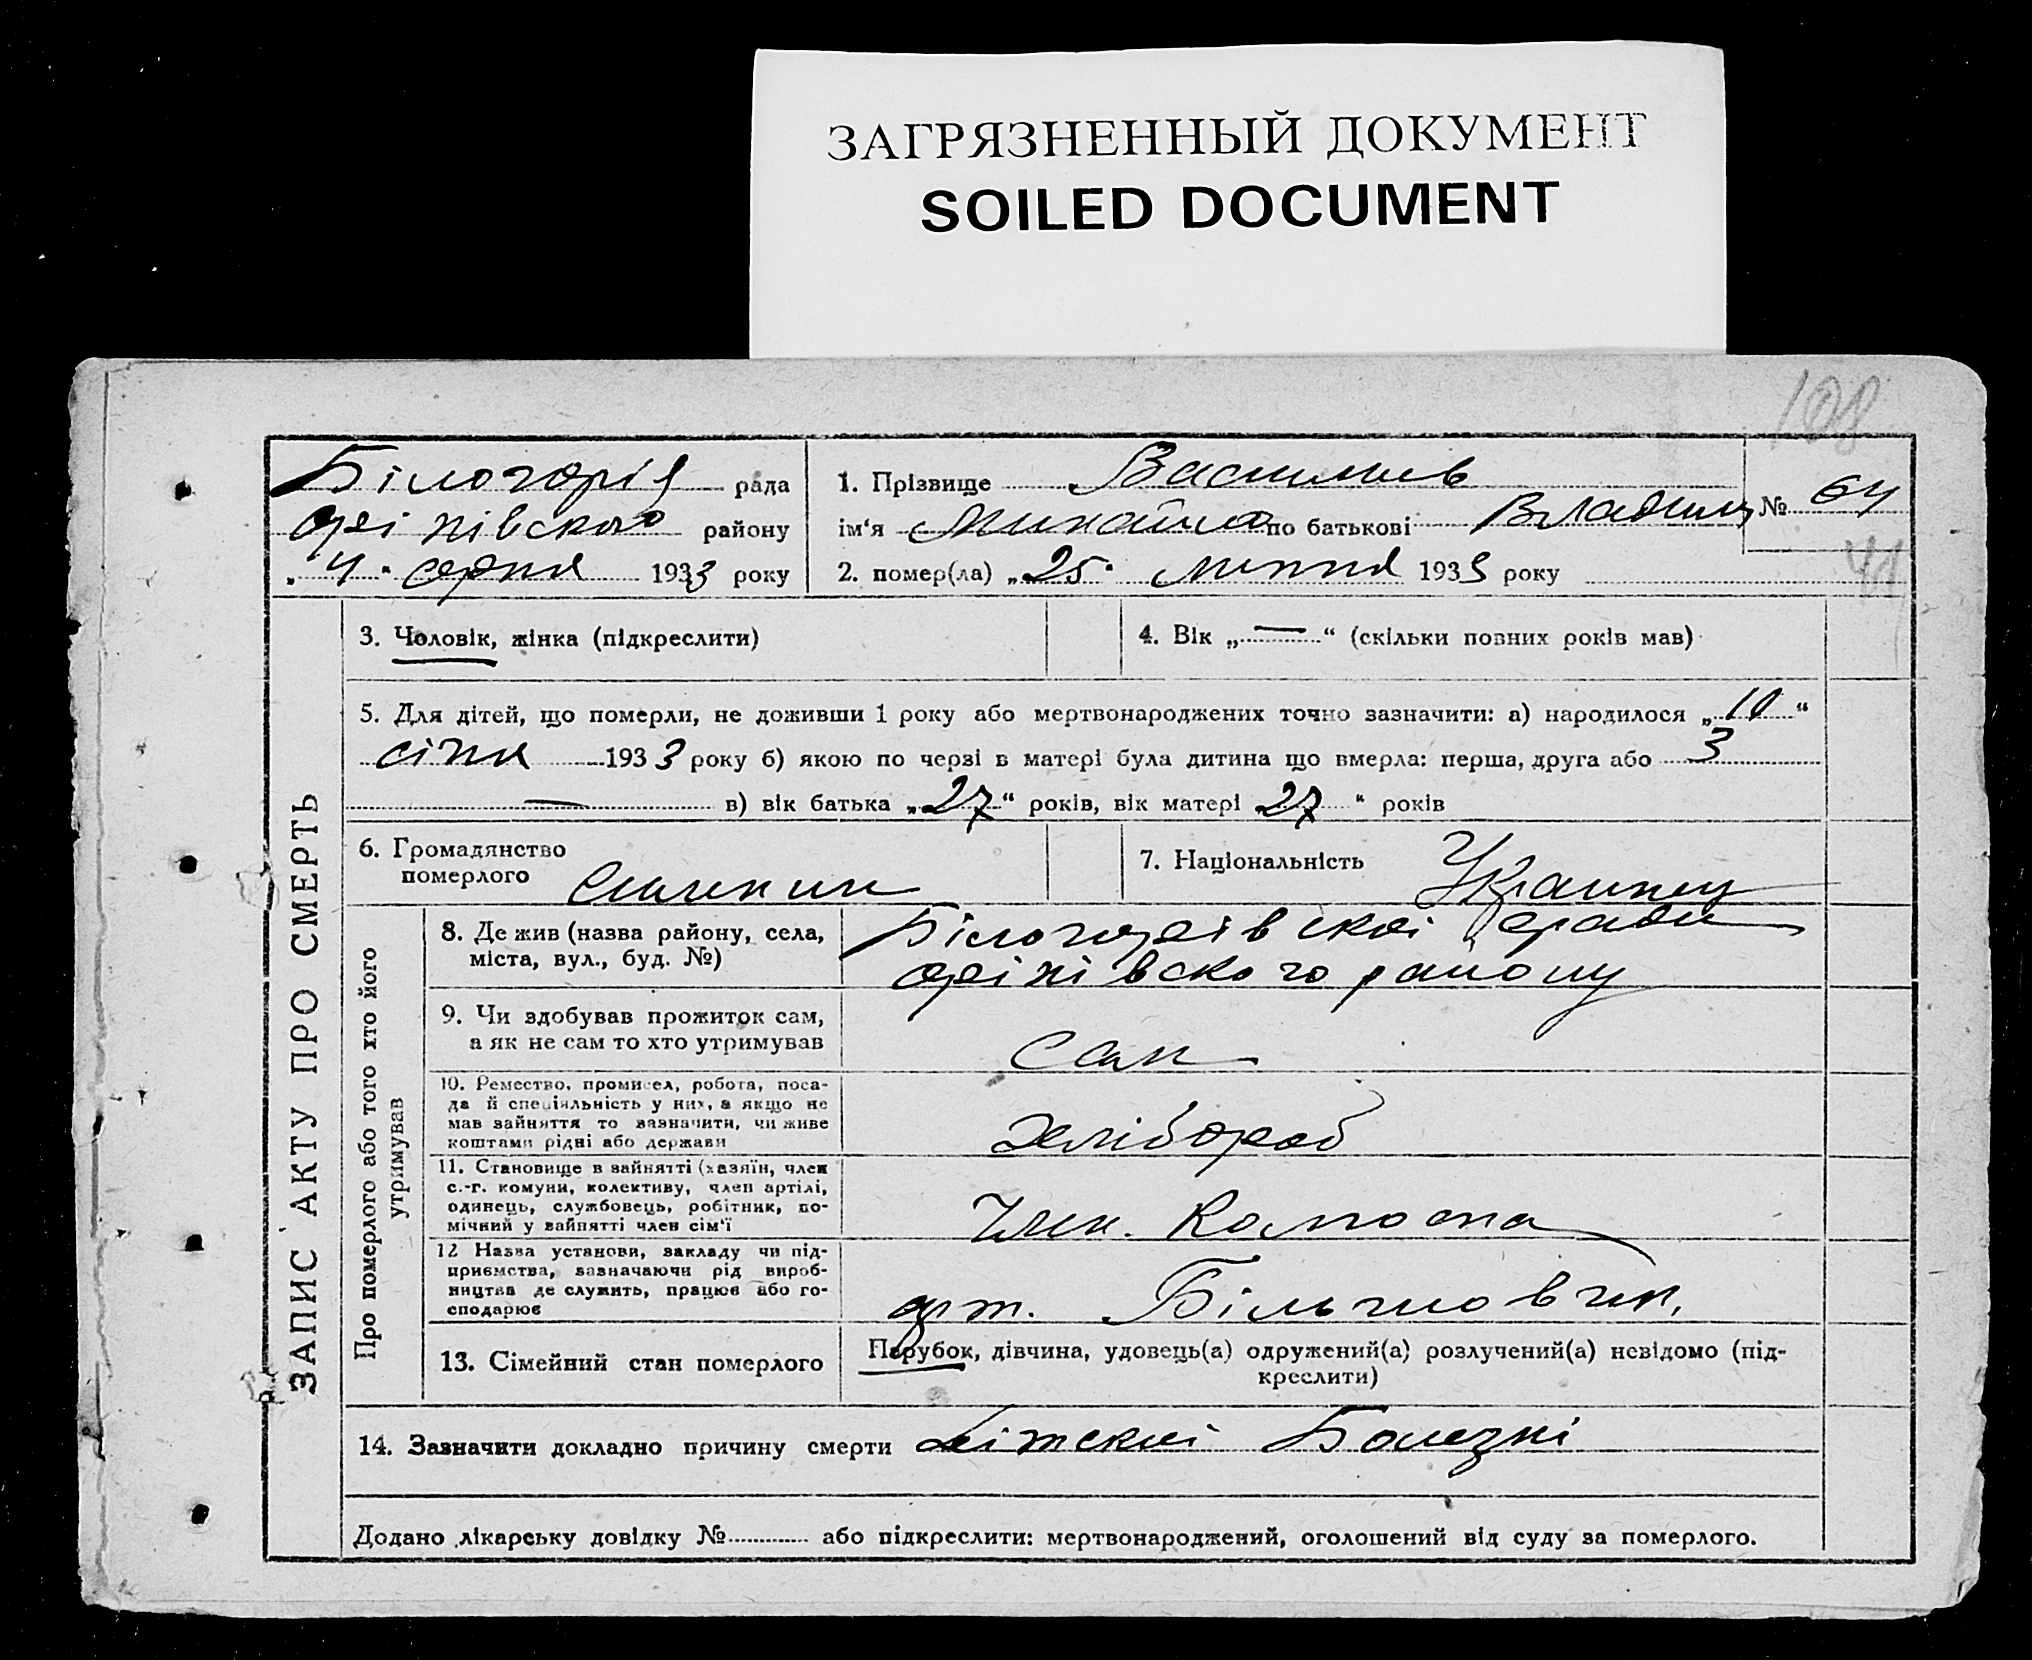 ЗАГРЯЗНЕННЫЙ ДОКУМЕНТ
SOILED DOCUMENT
108
Білогорів рада
оріхівского району
„4“ серпня 1933 року
1. Прізвище Василив
ім‘я Михайло по батькові Владим
№ 64
2. помер(ла) „25“ липня 1933 року
41
ЗАПИС АКТУ ПРО СМЕРТЬ
3. Чоловік, жінка (підкреслити)
4. Вік „—“ (скільки повних років мав)
5. Для дітей, що померли, не доживши 1 року або мертвонароджених точно зазначити: а) народилося „10“
січня 1933 року б) якою по черзі в матері була дитина що вмерла: перша, друга або 3
— в) вік батька „27“ років, вік матері 27 “ років
6. Громадянство
померлого
7. Національність Украинец
Про померлого або того хто його
утримував
8. Де жив (назва району, села,
міста, вул., буд. №)
Білогорівскої ради
оріхівского району
9. Чи здобував прожиток сам,
а як не сам то хто утримував
сам
10. Ремество, промисел, робота, поса-
да й спеціяльність у них, а якщо не
мав зайняття то зазначити, чи живе
коштами рідні або держави
хлібороб
11. Становище в зайнятті (хазяїн, член
с.-г. комуни, колективу, член артілі,
одинець, службовець, робітник, по-
мічний у зайнятті член сім‘ї
Член. Колгоспа
12 Назва установи, закладу чи під-
приємства, зазначаючи рід вироб-
ництва де служить, працює або го-
сподарює
арт. Більшовик.
13. Сімейний стан померлого
Парубок, дівчина, удовець(а) одружений(а) розлучений(а) невідомо (під-
креслити)
14. Зазначити докладно причину смерти Дітскої Болезні
Додано лікарську довідку № або підкреслити: мертвонароджений, оголошений від суду за померлого.